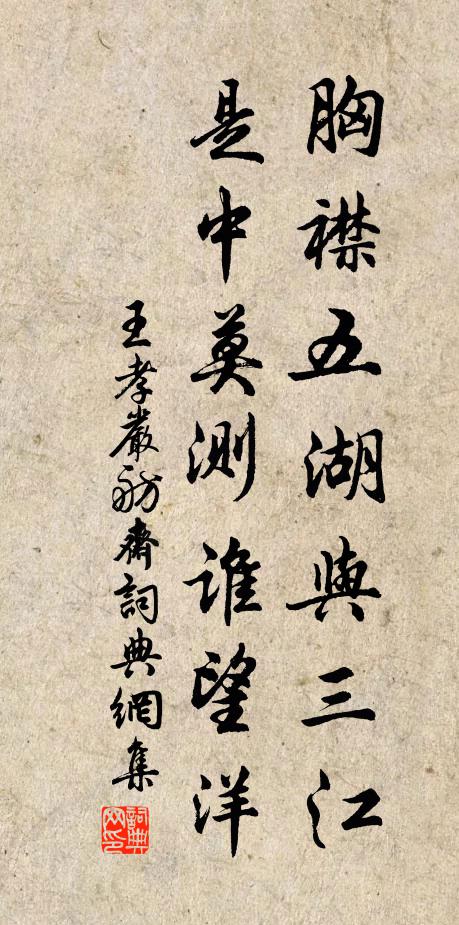 胸襟五湖與三江
是中莫測誰望洋
王孝嚴舫齋詞典網集
詞典網印